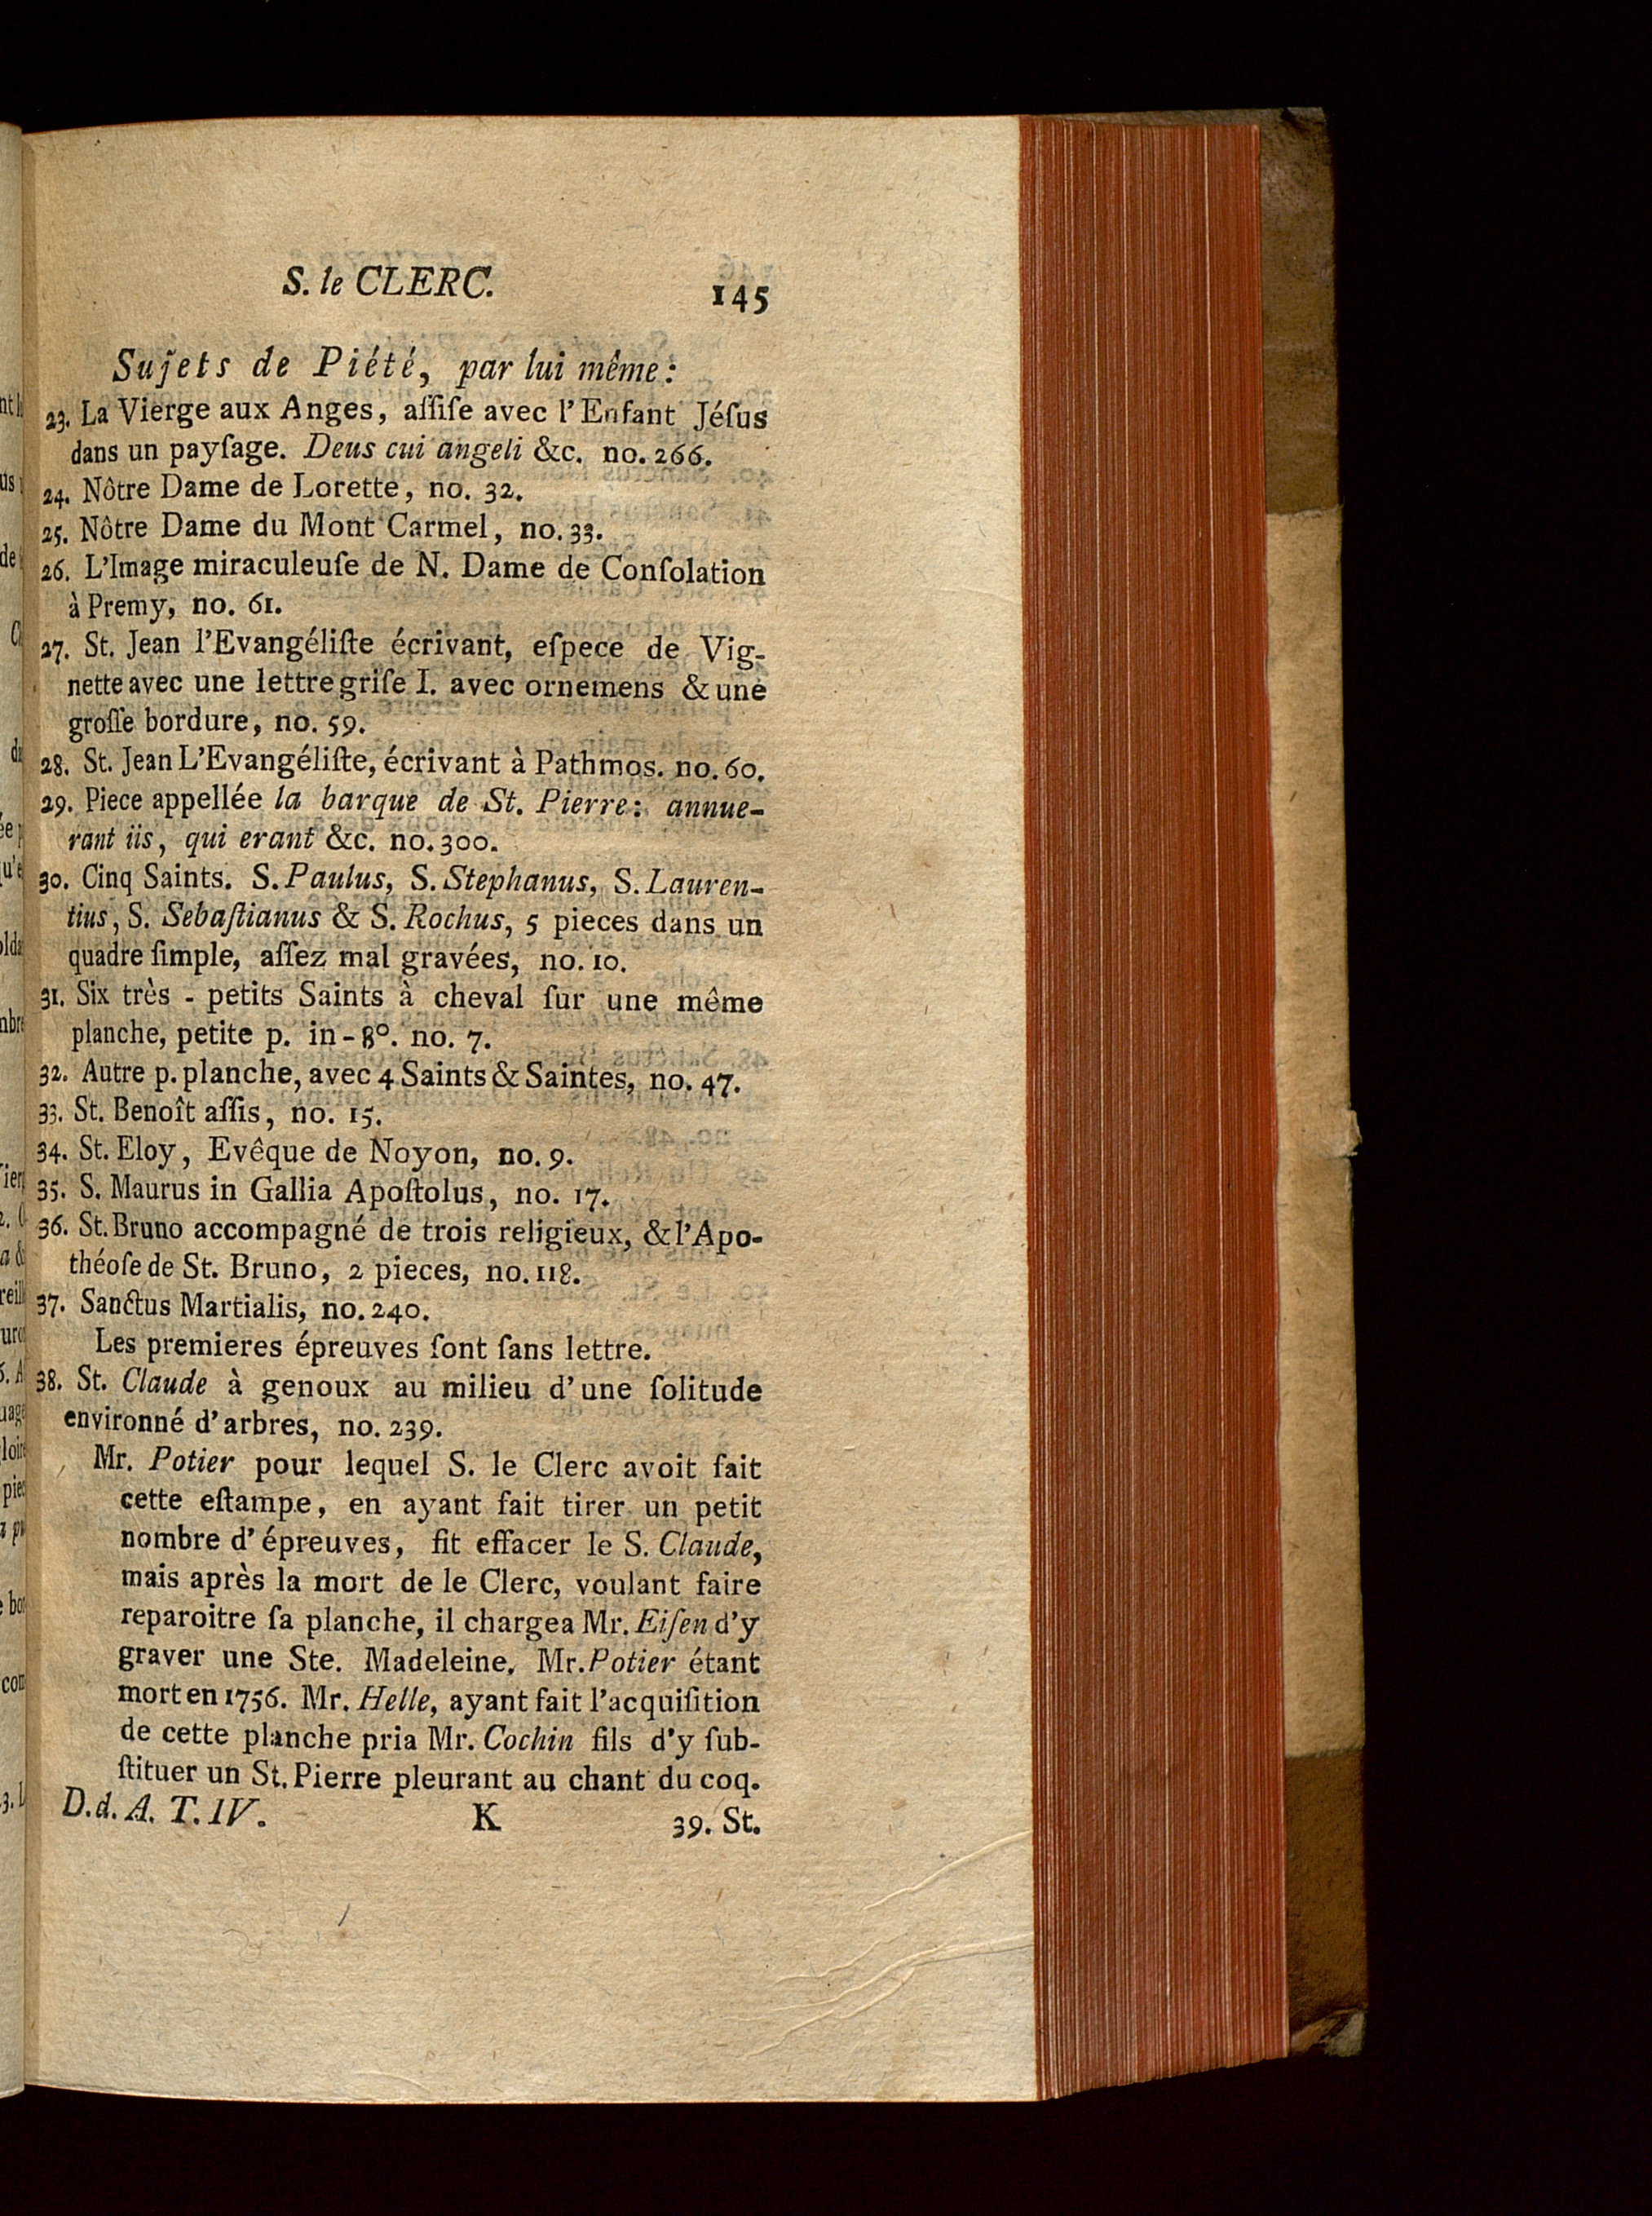 S. le CLERC.
145
Sujets de Piété, par lui même:
23. La Vierge aux Anges, aſſiſe avec l'Enfant Jéſus
dans un payſage. Deus cui angeli &c. no. 266.
24. Nôtre Dame de Lorette, no. 32.
25. Nôtre Dame du Mont Carmel, no. 33.
26. L'Image miraculeuſe de N. Dame de Conſolation
à Premy, no. 61.
27. St. Jean l'Evangéliſte écrivant, eſpece de Vig-
nette avec une lettre griſe I. avec ornemens & une
groſſe bordure, no. 59.
28. St. Jean L'Evangéliſte, écrivant à Pathmos. no. 60.
29. Piece appellée la barque de St. Pierre: annue-
rant iis, qui erant &c. no. 300.
30. Cinq Saints. S. Paulus, S. Stephanus, S. Lauren-
tius, S. Sebaſtianus & S. Rochus, 5 pieces dans un
quadre ſimple, aſſez mal gravées, no. 10.
31. Six très - petits Saints à cheval ſur une même
planche, petite p. in - 8°. no. 7.
32. Autre p. planche, avec 4 Saints & Saintes, no. 47.
33. St. Benoît aſſis, no. 15.
34. St. Eloy, Evêque de Noyon, no. 9.
35. S. Maurus in Gallia Apoſtolus, no. 17.
36. St. Bruno accompagné de trois religieux, & l'Apo-
théoſe de St. Bruno, 2 pieces, no. 118.
37. Sanctus Martialis, no. 240.
Les premieres épreuves ſont ſans lettre.
38. St. Claude à genoux au milieu d'une ſolitude
environné d'arbres, no. 239.
Mr. Potier pour lequel S. le Clerc avoit fait
cette eſtampe, en ayant fait tirer un petit
nombre d'épreuves, fit effacer le S. Claude,
mais après la mort de le Clerc, voulant faire
reparoitre ſa planche, il chargea Mr. Eiſen d'y
graver une Ste. Madeleine. Mr. Potier étant
mort en 1756. Mr. Helle, ayant fait l'acquiſition
de cette planche pria Mr. Cochin fils d'y ſub-
ſtituer un St. Pierre pleurant au chant du coq.
D. d. A. T. IV.
K
39. St.